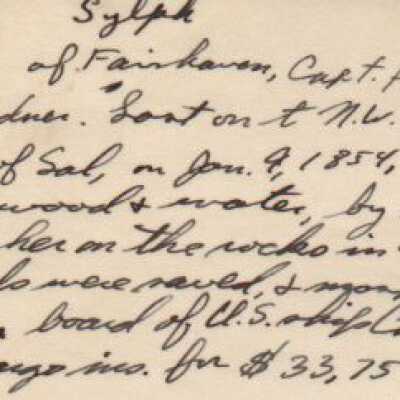 Sylph
of Fairhaven, Capt.
dner. Lost on t N.W.
of Sal, on Jan. 9, 1854,
wood & water, by
her on the rocks in
ls were saved, &
board of U.S. ship
ins. for $33,75